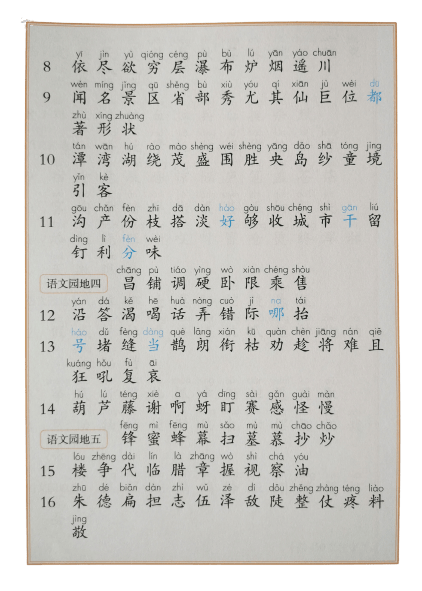 yī jìn yù qióng céng pù bù lú yān yáo chuān
8 依 尽 欲 穷 层 瀑 布 炉 烟 遥 川
wén míng jǐng qū shěng bù xiù yóu qí xiān jù wèi dū
9 闻 名 景 区 省 部 秀 尤 其 仙 巨 位 都
zhù xíng zhuàng
著 形 状
tán wān hú rào mào shèng wéi shèng yāng dǎo shā tóng jìng
10 潭 湾 湖 绕 茂 盛 围 胜 央 岛 纱 童 境
yǐn kè
引 客
gōu chǎn fèn zhī dā dàn hào gòu shōu chéng shì gān liú
11 沟 产 份 枝 搭 淡 好 够 收 城 市 干 留
dīng lì fèn wèi
钉 利 分 味
chāng pù tiáo yìng wò xiàn chéng shòu
语文园地四 昌 铺 调 硬 卧 限 乘 售
yán dá kě hē huà nòng cuò jì nǎ tái
12 沿 答 渴 喝 话 弄 错 际 哪 抬
háo dǔ féng dāng què lǎng xián kū quàn chèn jiāng nán qiě
13 号 堵 缝 当 鹊 朗 衔 枯 劝 趁 将 难 且
kuáng hǒu fù āi
狂 吼 复 哀
hú lú téng xiè a yá dīng sài gǎn guài màn
14 葫 芦 藤 谢 啊 蚜 盯 赛 感 怪 慢
fēng mì fēng mù sǎo mù mù chāo chǎo
语文园地五 锋 蜜 蜂 幕 扫 墓 慕 抄 炒
lóu zhēng dài lín là zhāng wò shì chá yóu
15 楼 争 代 临 腊 章 握 视 察 油
zhū dé biǎn dàn zhì wǔ zé dí dǒu zhěng zhàng téng liào
16 朱 德 扁 担 志 伍 泽 敌 陡 整 仗 疼 料
jìng
敬